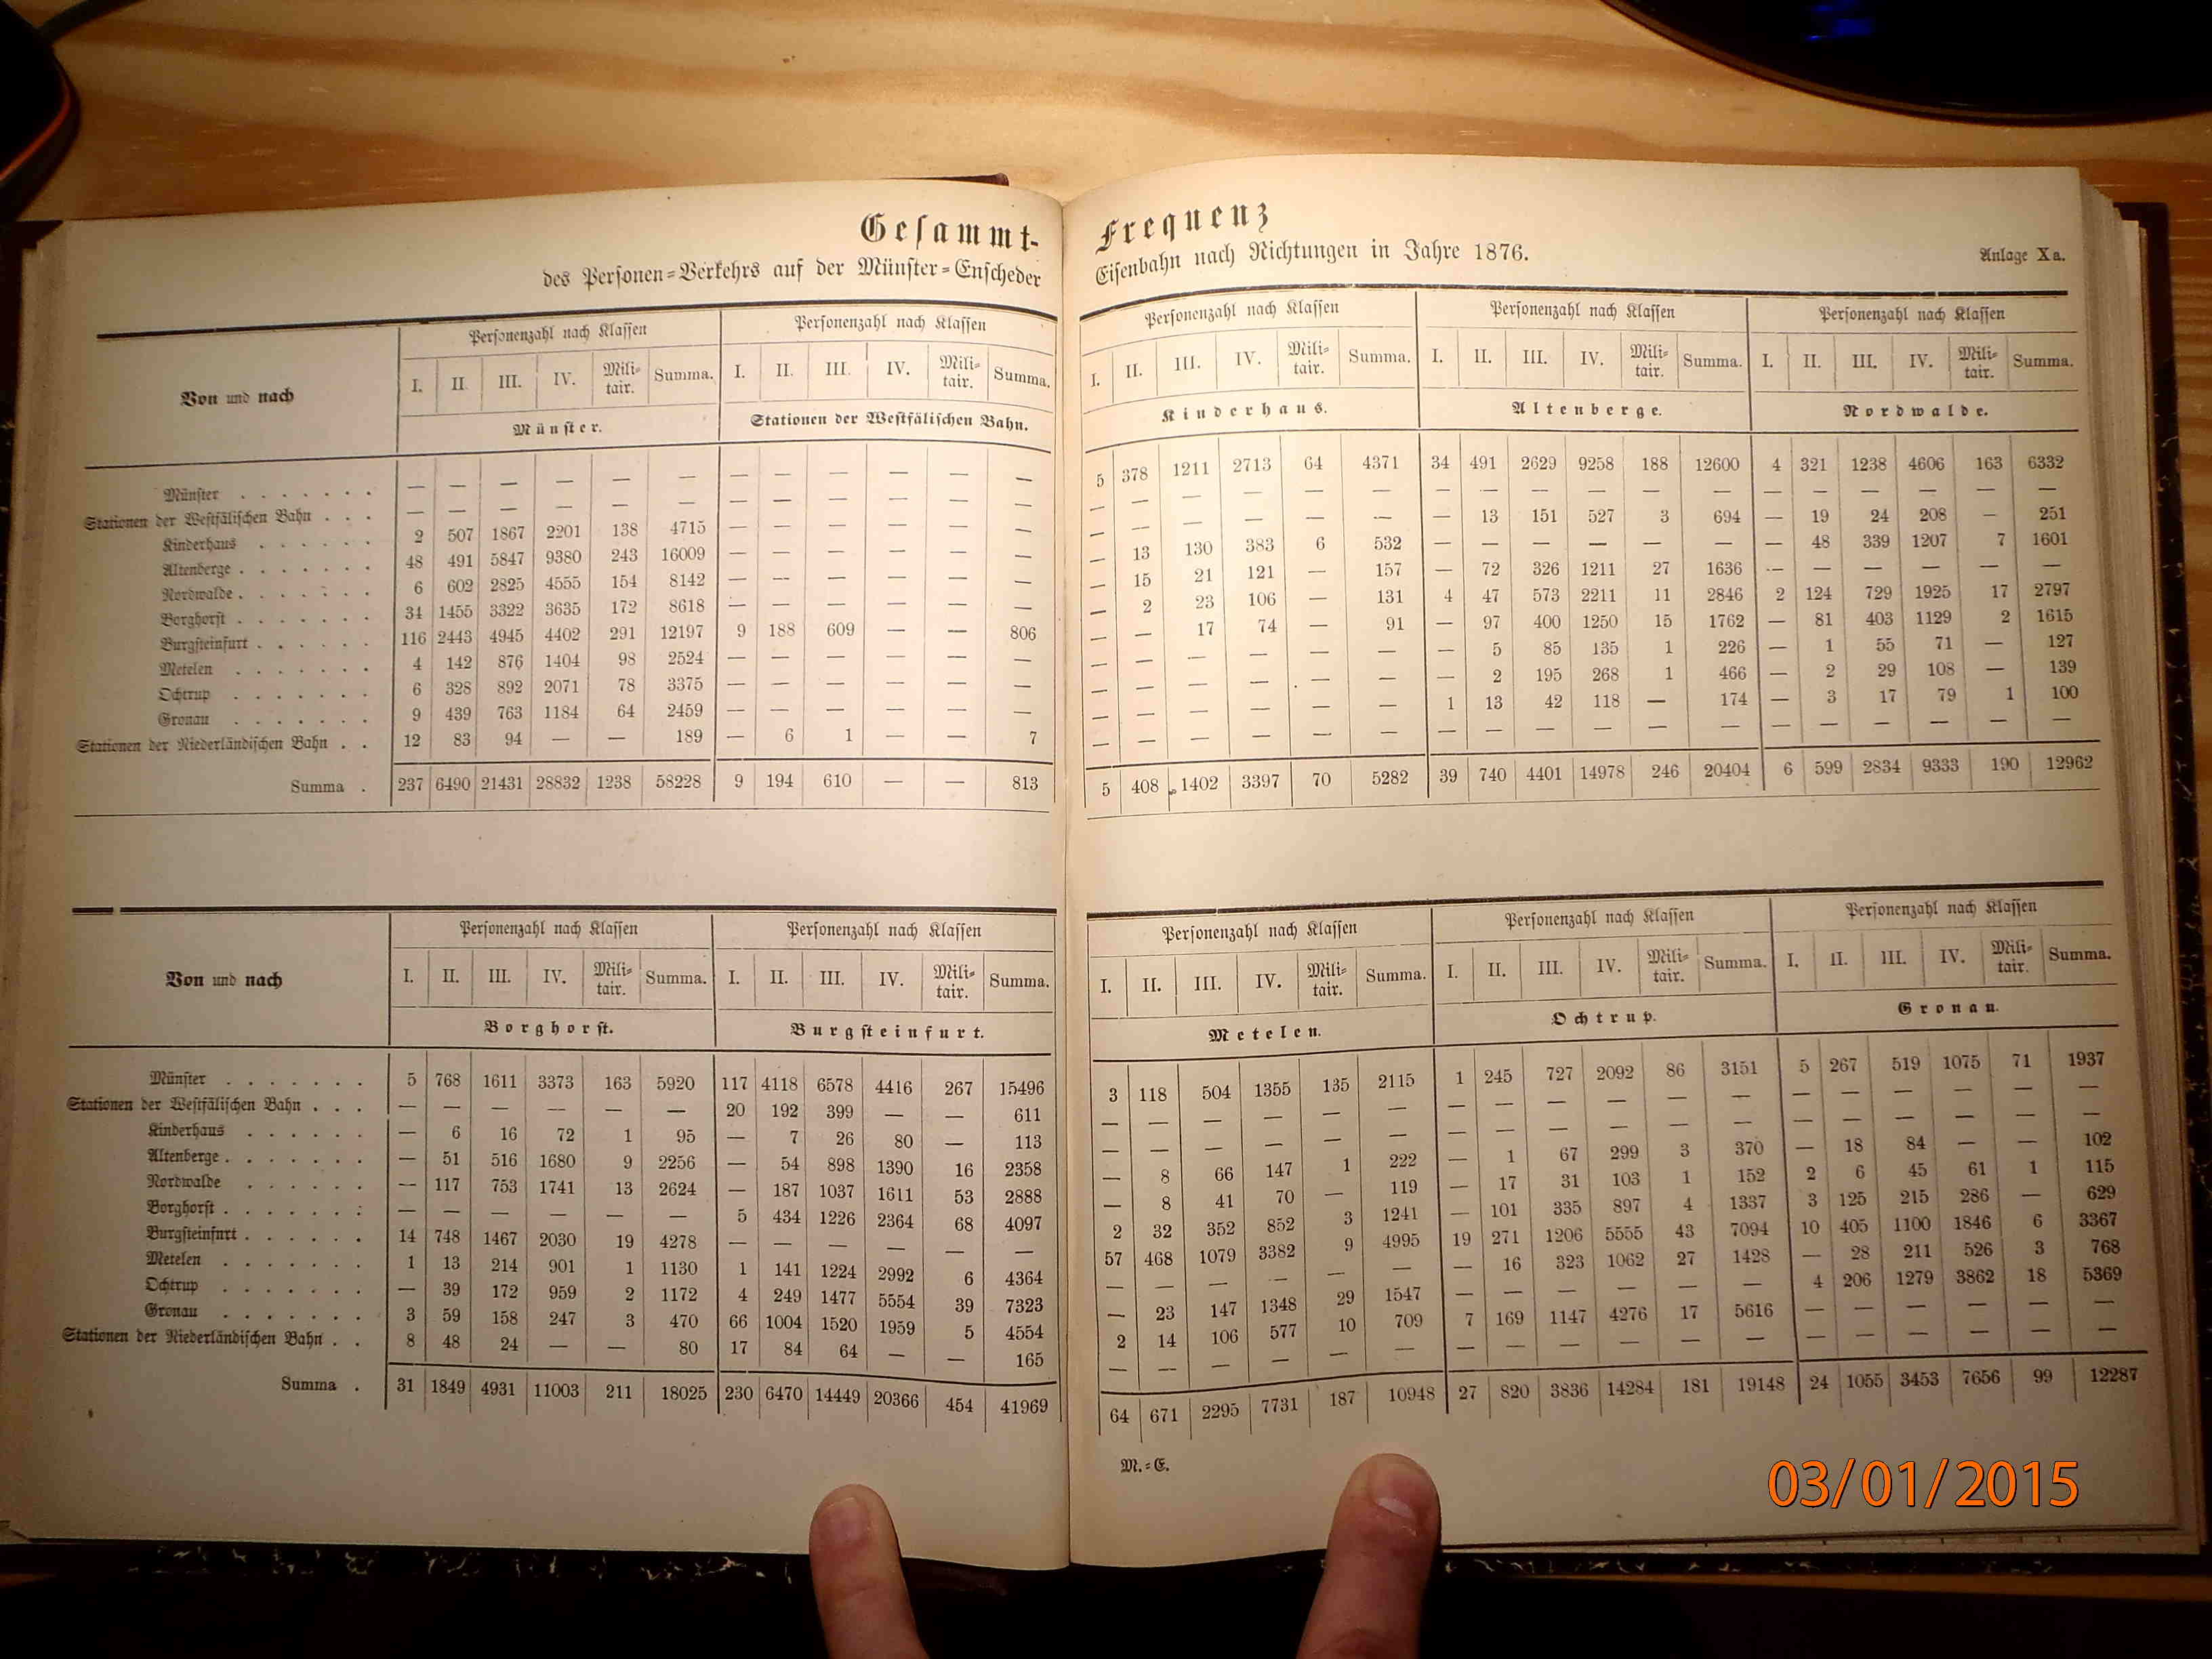 Gesammt-Frequenz
des Personen=Verkehrs auf der Münster=Enscheder Eisenbahn nach Richtungen in Jahre 1876.
Anlage Xa.
Von und nach | Personenzahl nach Klassen | Personenzahl nach Klassen | Personenzahl nach Klassen | Personenzahl nach Klassen | Personenzahl nach Klassen
I. II. III. IV. Mili=tair. Summa. | I. II. III. IV. Mili=tair. Summa. | I. II. III. IV. Mili=tair. Summa. | I. II. III. IV. Mili=tair. Summa. | I. II. III. IV. Mili=tair. Summa.
Münster. | Stationen der Westfälischen Bahn. | Kinderhaus. | Altenberge. | Nordwalde.
Münster . . . . . . . | — — — — — — | — — — — — — | 5 378 1211 2713 64 4371 | 34 491 2629 9258 188 12600 | 4 321 1238 4606 163 6332
Stationen der Westfälischen Bahn . . . | — — — — — — | — — — — — — | — — — — — — | — — — — — — | — — — — — —
Kinderhaus . . . . . . | 2 507 1867 2201 138 4715 | — — — — — — | — — — — — — | — 13 151 527 3 694 | — 19 24 208 — 251
Altenberge . . . . . . . | 48 491 5847 9380 243 16009 | — — — — — — | — 13 130 383 6 532 | — — — — — — | — 48 339 1207 7 1601
Nordwalde . . . . . . . | 6 602 2825 4555 154 8142 | — — — — — — | — 15 21 121 — 157 | — 72 326 1211 27 1636 | — — — — — —
Borghorst . . . . . . . | 34 1455 3322 3635 172 8618 | — — — — — — | — 2 23 106 — 131 | 4 47 573 2211 11 2846 | 2 124 729 1925 17 2797
Burgsteinfurt . . . . . . | 116 2443 4945 4402 291 12197 | 9 188 609 — — 806 | — — 17 74 — 91 | — 97 400 1250 15 1762 | — 81 403 1129 2 1615
Metelen . . . . . . . | 4 142 876 1404 98 2524 | — — — — — — | — — — — — — | — 5 85 135 1 226 | — 1 55 71 — 127
Ochtrup . . . . . . . | 6 328 892 2071 78 3375 | — — — — — — | — — — — — — | — 2 195 268 1 466 | — 2 29 108 — 139
Gronau . . . . . . . | 9 439 763 1184 64 2459 | — — — — — — | — — — — — — | 1 13 42 118 — 174 | — 3 17 79 1 100
Stationen der Niederländischen Bahn . . | 12 83 94 — — 189 | — 6 1 — — 7 | — — — — — — | — — — — — — | — — — — — —
Summa . | 237 6490 21431 28832 1238 58228 | 9 194 610 — — 813 | 5 408 1402 3397 70 5282 | 39 740 4401 14978 246 20404 | 6 599 2834 9333 190 12962
Von und nach | Personenzahl nach Klassen | Personenzahl nach Klassen | Personenzahl nach Klassen | Personenzahl nach Klassen | Personenzahl nach Klassen
I. II. III. IV. Mili=tair. Summa. | I. II. III. IV. Mili=tair. Summa. | I. II. III. IV. Mili=tair. Summa. | I. II. III. IV. Mili=tair. Summa. | I. II. III. IV. Mili=tair. Summa.
Borghorst. | Burgsteinfurt. | Metelen. | Ochtrup. | Gronau.
Münster . . . . . . . | 5 768 1611 3373 163 5920 | 117 4118 6578 4416 267 15496 | 3 118 504 1355 135 2115 | 1 245 727 2092 86 3151 | 5 267 519 1075 71 1937
Stationen der Westfälischen Bahn . . . | — — — — — — | 20 192 399 — — 611 | — — — — — — | — — — — — — | — — — — — —
Kinderhaus . . . . . . | — 6 16 72 1 95 | — 7 26 80 — 113 | — — — — — — | — — — — — — | — — — — — —
Altenberge . . . . . . . | — 51 516 1680 9 2256 | — 54 898 1390 16 2358 | — 8 66 147 1 222 | — 1 67 299 3 370 | — 18 84 — — 102
Nordwalde . . . . . . | — 117 753 1741 13 2624 | — 187 1037 1611 53 2888 | — 8 41 70 — 119 | — 17 31 103 1 152 | 2 6 45 61 1 115
Borghorst . . . . . . . | — — — — — — | 5 434 1226 2364 68 4097 | 2 32 352 852 3 1241 | — 101 335 897 4 1337 | 3 125 215 286 — 629
Burgsteinfurt . . . . . . | 14 748 1467 2030 19 4278 | — — — — — — | 57 468 1079 3382 9 4995 | 19 271 1206 5555 43 7094 | 10 405 1100 1846 6 3367
Metelen . . . . . . . | 1 13 214 901 1 1130 | 1 141 1224 2992 6 4364 | — — — — — — | — 16 323 1062 27 1428 | — 28 211 526 3 768
Ochtrup . . . . . . . | — 39 172 959 2 1172 | 4 249 1477 5554 39 7323 | — 23 147 1348 29 1547 | — — — — — — | 4 206 1279 3862 18 5369
Gronau . . . . . . . | 3 59 158 247 3 470 | 66 1004 1520 1959 5 4554 | 2 14 106 577 10 709 | 7 169 1147 4276 17 5616 | — — — — — —
Stationen der Niederländischen Bahn . . | 8 48 24 — — 80 | 17 84 64 — — 165 | — — — — — — | — — — — — — | — — — — — —
Summa . | 31 1849 4931 11003 211 18025 | 230 6470 14449 20366 454 41969 | 64 671 2295 7731 187 10948 | 27 820 3836 14284 181 19148 | 24 1055 3453 7656 99 12287
M.=E.
03/01/2015